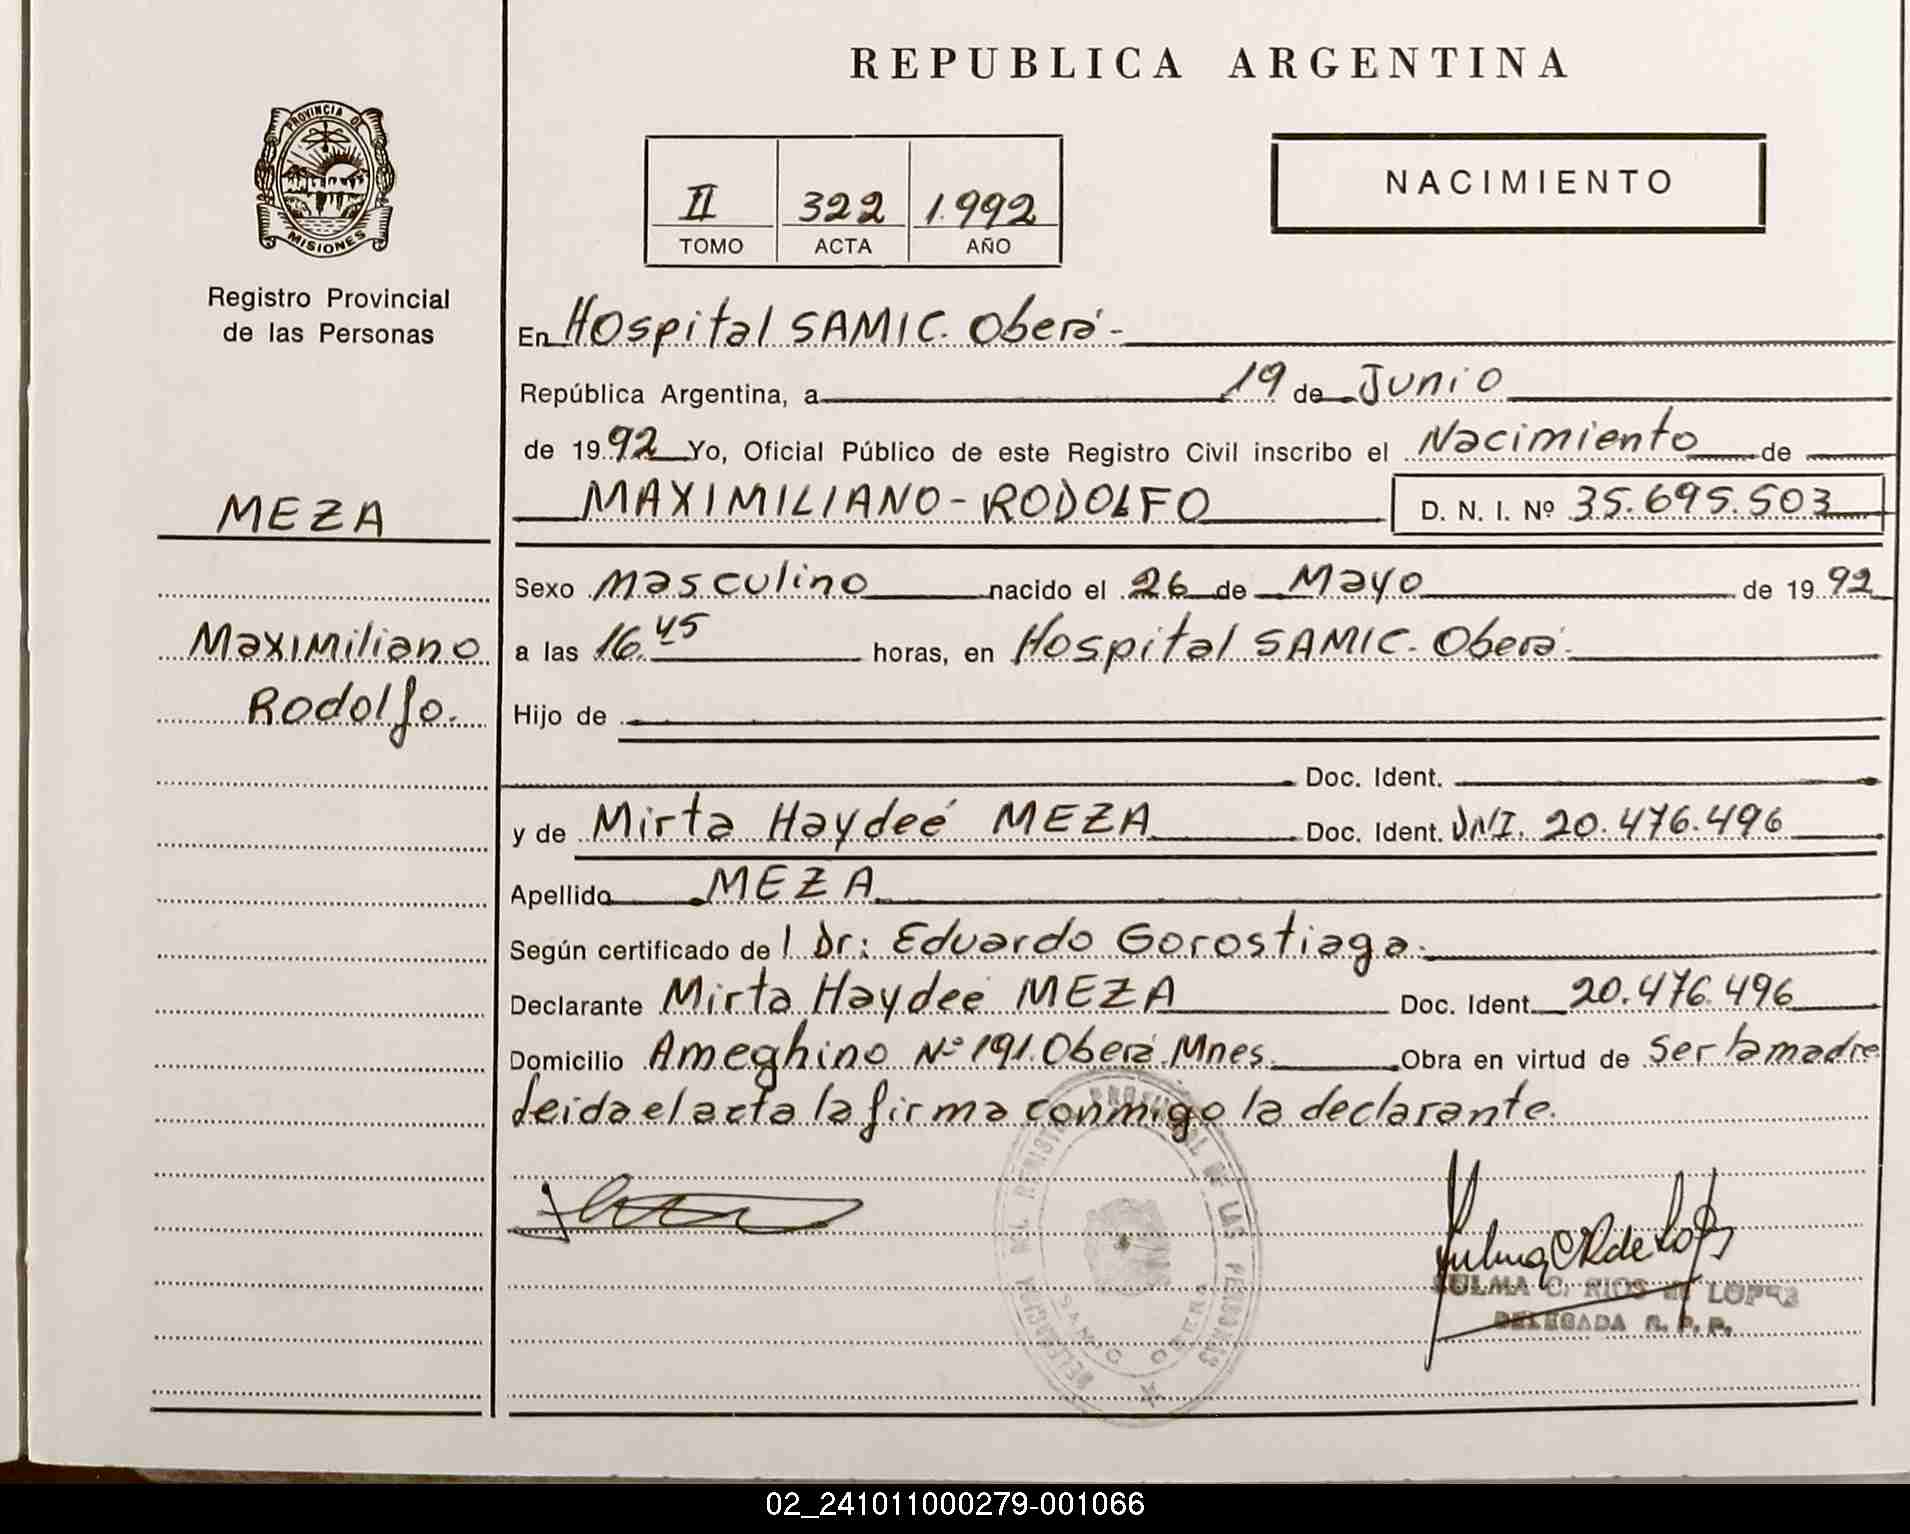 REPUBLICA ARGENTINA
PROVINCIA DE
MISIONES
Registro Provincial
de las Personas
II 322 1.992
TOMO ACTA AÑO
NACIMIENTO
En Hospital SAMIC. Oberá-
República Argentina, a 19 de Junio
de 1992 Yo, Oficial Público de este Registro Civil inscribo el Nacimiento de
MEZA
Maximiliano
Rodolfo.
MAXIMILIANO-RODOLFO D. N. I. Nº 35.695.503
Sexo Masculino nacido el 26 de Mayo de 1992
a las 16.45 horas, en Hospital SAMIC. Oberá.
Hijo de
Doc. Ident.
y de Mirta Haydeé MEZA Doc. Ident. DNI. 20.476.496
Apellido MEZA
Según certificado de l Dr: Eduardo Gorostiaga.
Declarante Mirta Haydeé MEZA Doc. Ident. 20.476.496
Domicilio Ameghino Nº 191. Oberá. Mnes. Obra en virtud de ser la madre
Leida el acta la firma conmigo la declarante.
DELEGACION DEL REGISTRO PROVINCIAL DE LAS PERSONAS
OBERA
Zulma C R de López
ZULMA C. RIOS de LOPEZ
DELEGADA R. P. P.
02_241011000279-001066